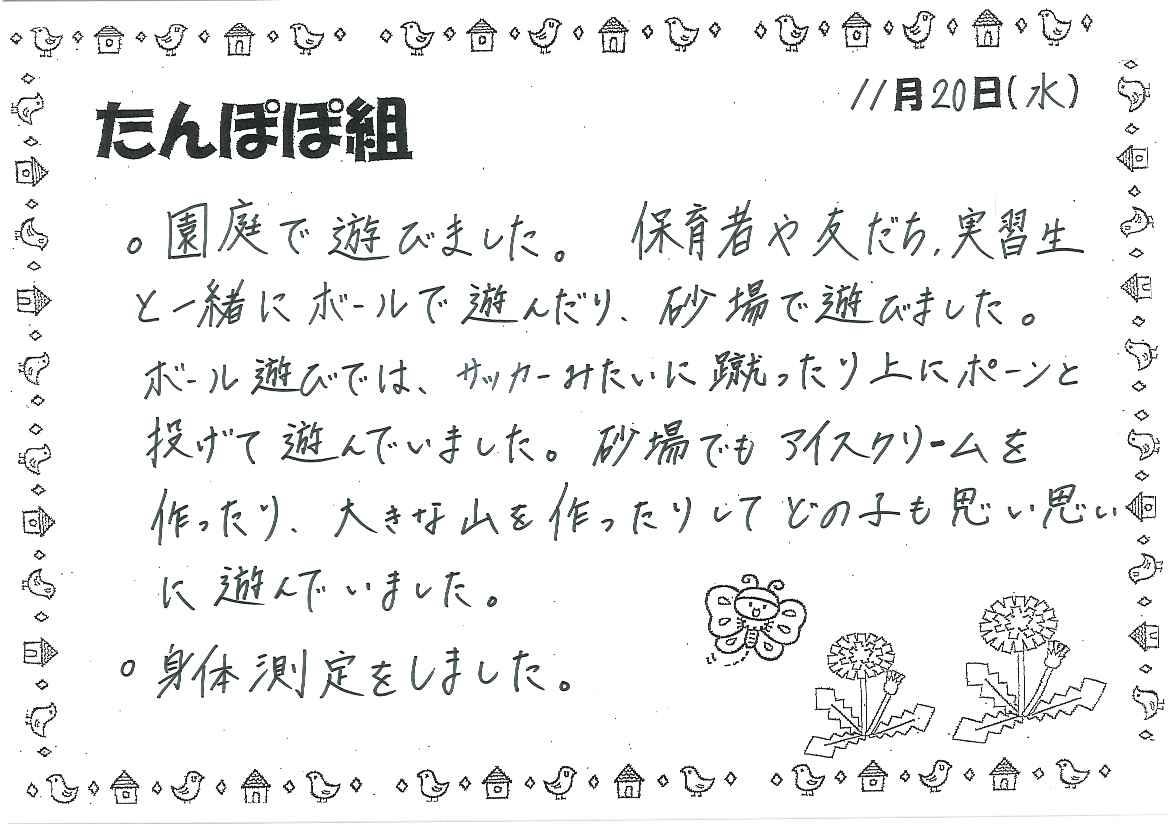 11月20日(水)
たんぽぽ組
。園庭で遊びました。 保育者や友だち、実習生
と一緒にボールで遊んだり、砂場で遊びました。
ボール遊びでは、サッカーみたいに蹴ったり上にポーンと
投げて遊んでいました。砂場でもアイスクリームを
作ったり、大きな山を作ったりしてどの子も思い思い
に遊んでいました。
。身体測定をしました。